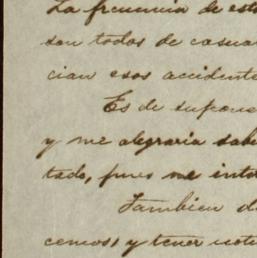 La frecuencia de est
son todos de casua
cian esos accidente
Es de supone
y me alegraria sabe
tado, pues me inte
Tambien d
cemos, y tener noti